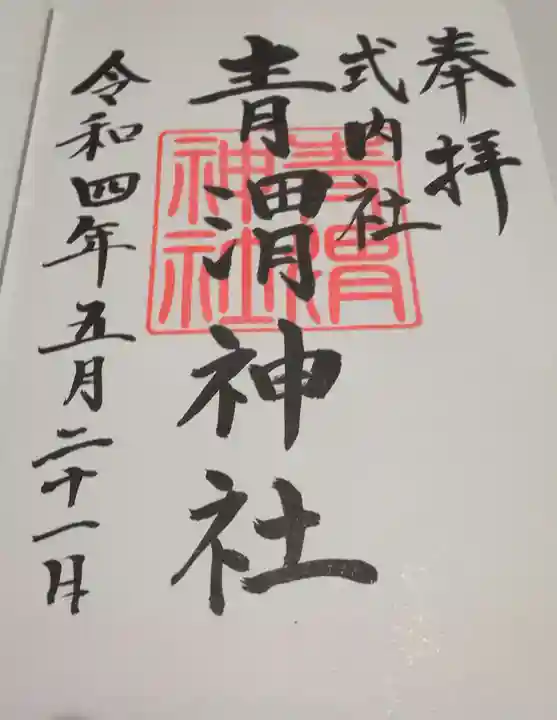 奉拝
式内社
青渭神社
青渭神社
令和四年五月二十一日